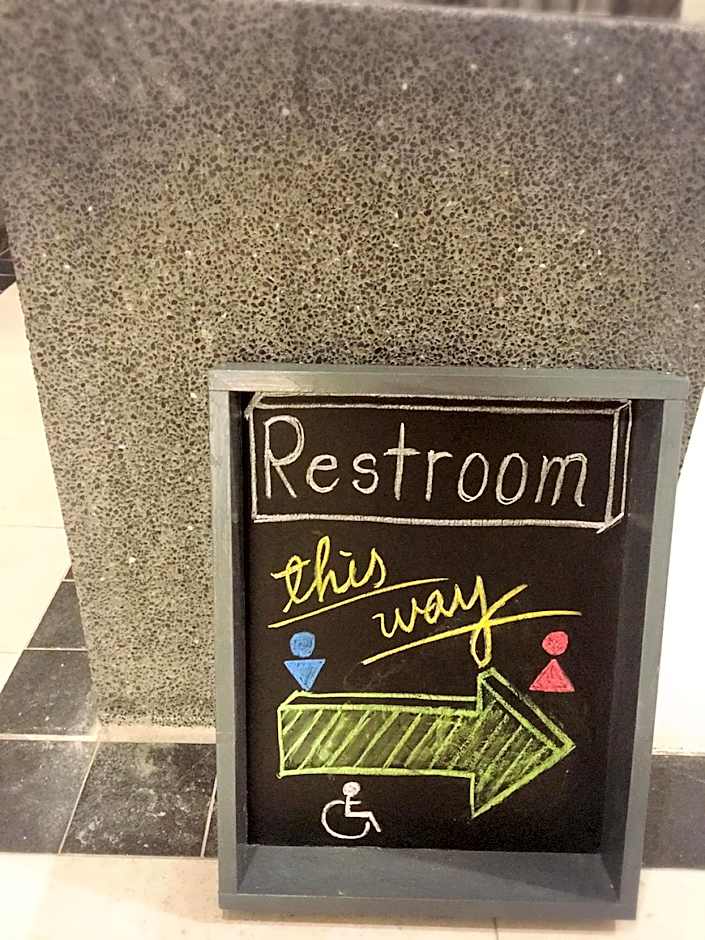 Restroom
this
way